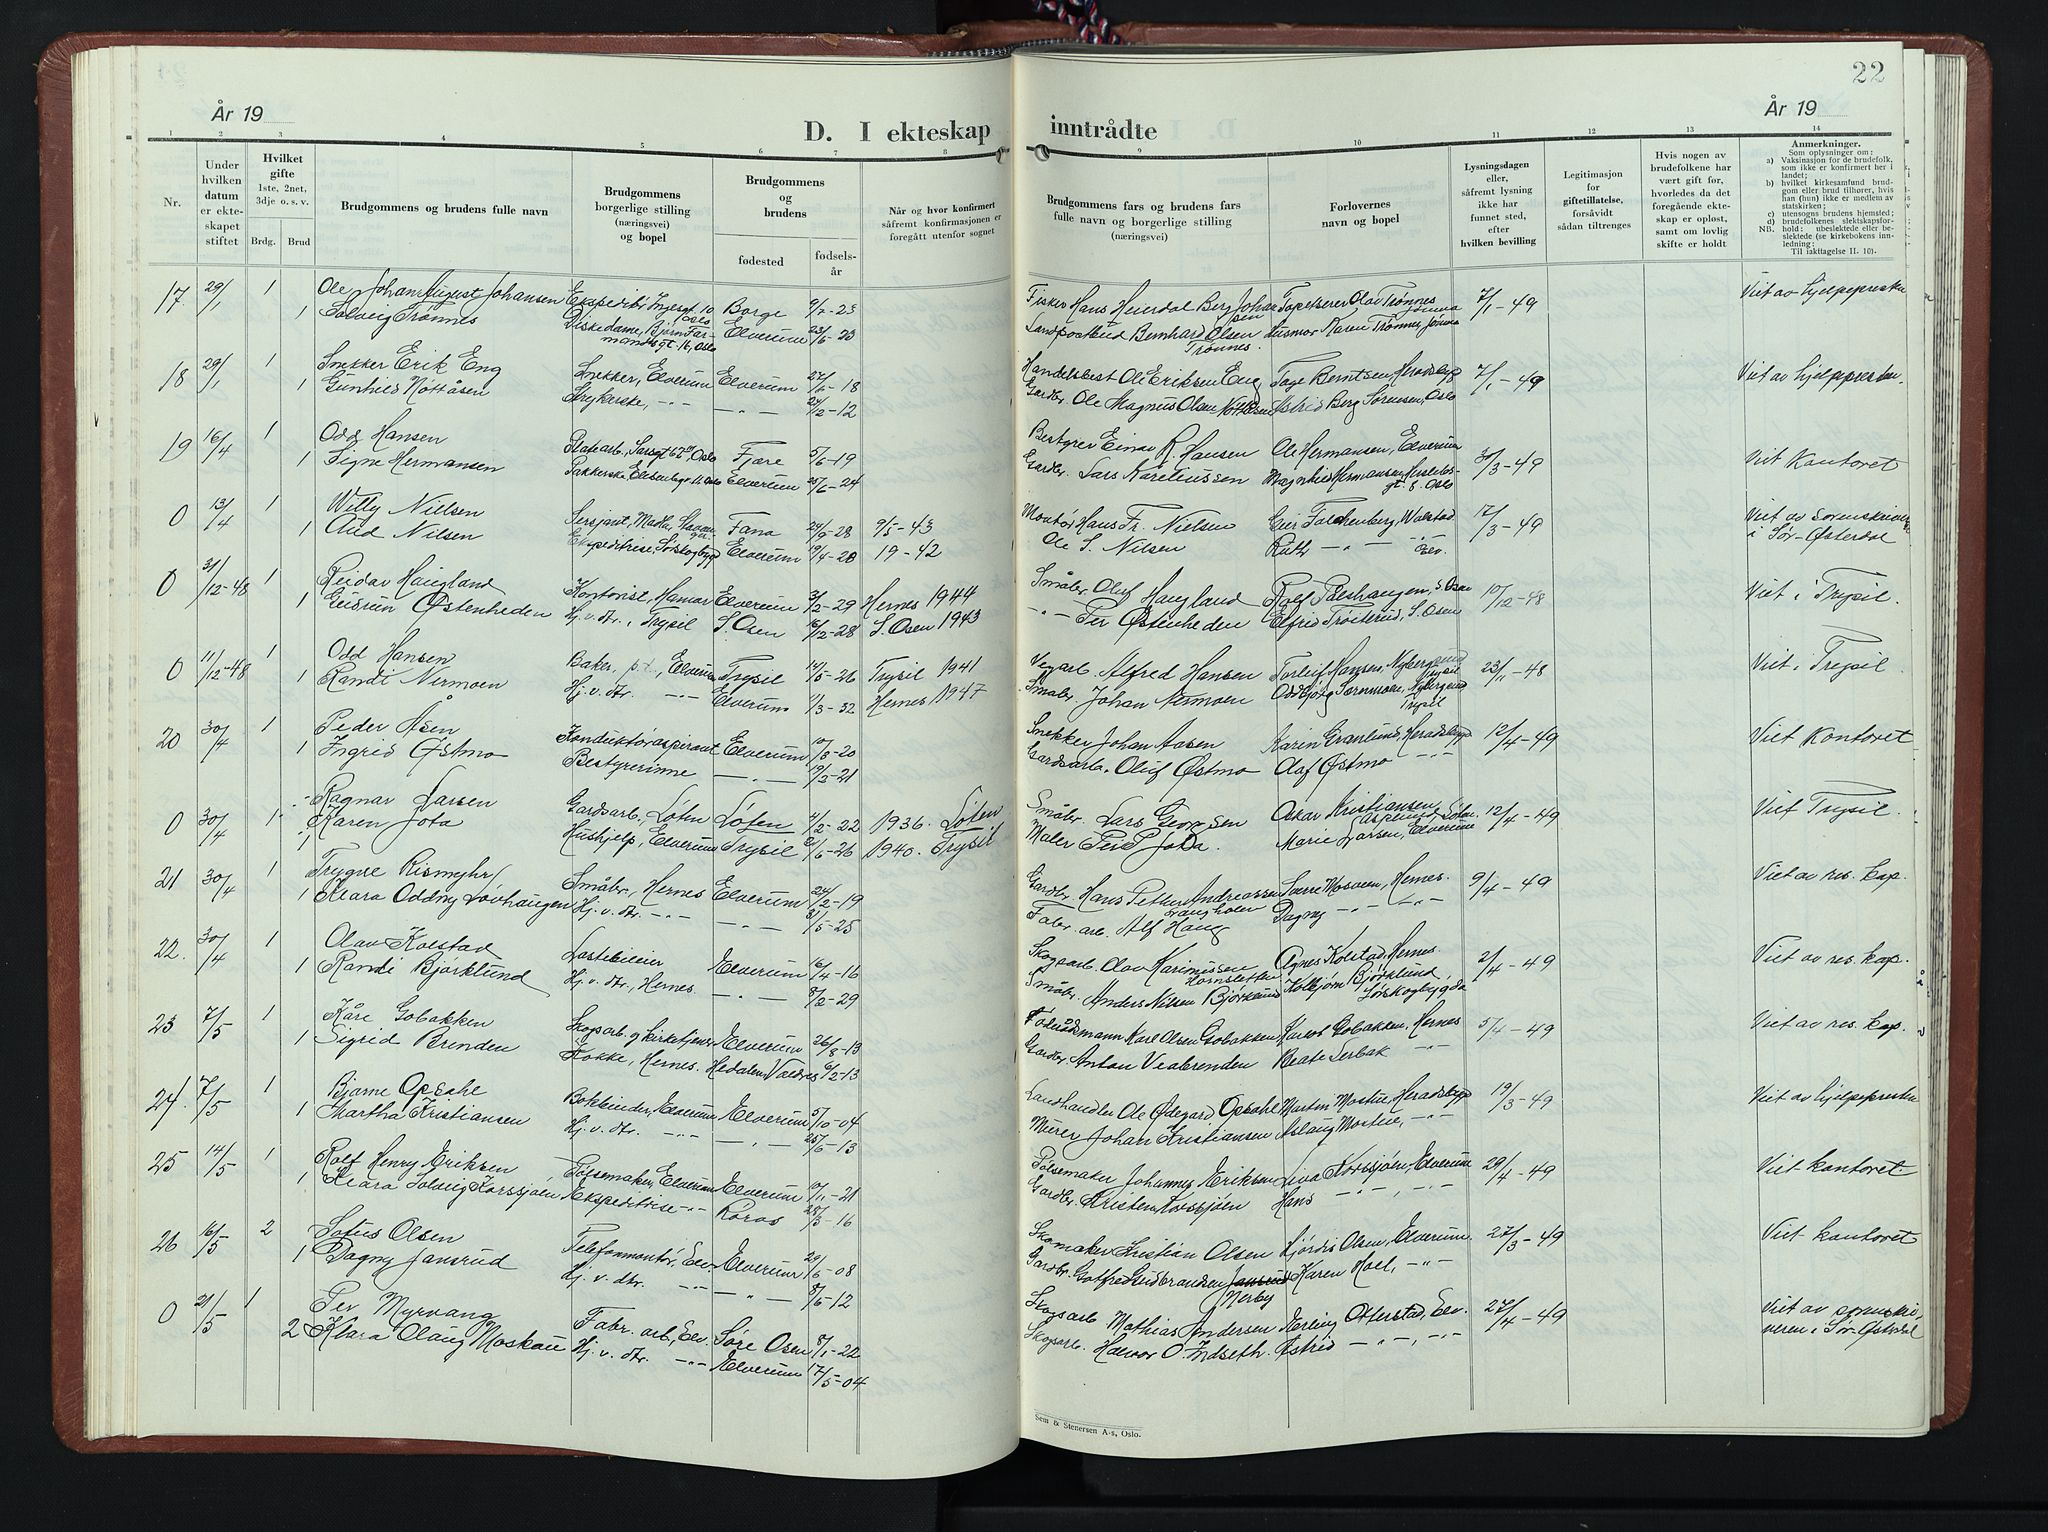 22
År 19
År 19
D. I ekteskap
inntrådte
1 2 3 4 5 6 7 8
9 10 11 12 13 14
Nr.
Under hvilken datum er ekteskapet stiftet
Hvilket gifte 1ste, 2net, 3dje o. s. v.
Brdg. Brud
Brudgommens og brudens fulle navn
Brudgommens borgerlige stilling (næringsvei) og bopel
Brudgommens og brudens
fødested fødselsår
Når og hvor konfirmert såfremt konfirmasjonen er foregått utenfor sognet
Brudgommens fars og brudens fars fulle navn og borgerlige stilling (næringsvei)
Forlovernes navn og bopel
Lysningsdagen eller, såfremt lysning ikke har funnet sted, efter hvilken bevilling
Legitimasjon for giftetillatelse, forsåvidt sådan tiltrenges
Hvis nogen av brudefolkene har vært gift før, hvorledes da det foregående ekteskap er opløst, samt om lovlig skifte er holdt
Anmerkninger.
Som oplysninger om:
a) Vaksinasjon for de brudefolk, som ikke er konfirmert her i landet;
b) hvilket kirkesamfund brudgom eller brud tilhører, hvis han (hun) ikke er medlem av statskirken;
c) utensogns brudens hjemsted;
d) brudefolkenes slektskapsforhold: ubeslektede eller beslektede (se kirkebokens innledning:
NB. Til iakttagelse II. 10).
17 29/1 1 Ole Johan August Johansen Ekspeditør, Borge Fisker Hans Heierdal Berg Johansen Tapetserer Olav Trønnes 7/1-49 Viet av hjelpeprestn
1 Solveig Trønnes Diskedame, Bjørn Farmandsgt. 16, Oslo Elverum 23/6-23 Landpostbud Bernhard Olsen Trønnes. Husmor Karen Trønnes, Jømna
18 29/1 1 Snekker Erik Eng Snekker, Elverum Elverum 27/6-18 Handelsbest Ole Eriksen Eng Tage Berntsen, Heradsbygd 7/1-49 Viet av hjelpepresten
1 Gunhild Nøttåsen Strykerske, -"- -"- 24/2-12 Gardbr. Ole Magnus Olsen Nøttåsen Astrid Berg Sørensen, Oslo
19 16/4 1 Odd Hansen Platearb., Fjære 5/6-19 Bestyrer Einar R. Hansen Ole Hermansen, Elverum 30/3-49 Viet Kontoret
1 Signe Hermansen Pakkerske, Elverum 25/6-24 Gardbr. Lars Kåretiussen Magnhild Hermansen, gt. 8. Oslo
0 13/4 1 Willy Nielsen Sersjant, Madla, Stavanger Fana 24/9-28 9/5-43 Montør Hans Fr. Nielsen Geir Falchenberg, Walstad 17/3-49 Viet av sorenskriver
1 Aud Nilsen Ekspeditrise, Sørskogbygd Elverum 19/4-28 19-42 Ole S. Nilsen Ruth -"- -"- Elv. i Sør-Østerdal
0 31/12-48 1 Reidar Haugland Kontorist, Hamar Elverum 3/2-29 Hernes 1944 Småbr. Oluf Haugland Rolf S. Osen 10/12-48 Viet i Trysil.
1 Gudrun Østenheden Hj. v. dtr., Trysil S. Osen 16/12-28 S. Osen 1943 -"- Per Østenheden Elfrid Trøiterud, S. Osen
0 11/12-48 1 Odd Hansen Baker, p.t., Elverum Trysil 14/5-26 Trysil 1941 Vegarb. Alfred Hansen Torleif Hansen, Nybergsund Trysil 23/11-48 Viet i Trysil
1 Randi Nermoen Hj. v. dtr. -"- Elverum 11/3-32 Hernes 1947 Småbr. Johan Nermoen Oddbjørg Nybergsund Trysil
20 30/4 1 Peder Åsen Konduktøraspirant Elverum 10/8-20 Snekker Johan Aasen Karin Granlund, Heradsbygd 12/4-49 Viet Kontoret
1 Ingrid Østmo Bestyrerinne -"- 19/3-21 Gardsarb. Oluf Østmo Olaf Østmo -"-
0 30/4 1 Ragnar Larsen Gardsarb., Løten Løten 4/2-22 1936. Løten Småbr. Lars Georgsen Oskar Kristiansen, Løten 12/4-49 Viet Trysil.
1 Karen Jota Hushjelp, Elverum Trysil 21/6-26 1940. Trysil Maler Per P. Jota. Marie Larsen, Elverum
21 30/4 1 Trygve Rismyhr Småbr., Hernes Elverum 24/2-19 Gardbr. Hans Petter Andreassen Langholen Sverre Mosveen, Hernes. 9/4-49 Viet av res. kap.
1 Klara Oddny Løvhaugen Hj. v. dtr. -"- -"- 31/5-25 Fabr. arb. Alf Haug Dagny -"- -"-
22. 30/4 1 Olav Kolstad Lastebileier Elverum 16/4-16 Skogsarb. Olav Karinussen Hornsletten Agnes Kolstad, Hernes 2/4-49 Viet av res. kap.
1 Randi Bjørklund Hj. v. dtr., Hernes. -"- 8/2-29 Småbr. Anders Nilsen Bjørklund Kolbjørn Bjørklund, Sørskogbygda
23 7/5 1 Kåre Gobakken Skogsarb. og kirketjener Elverum 26/8-13 Fødsrådsmann Karl Olsen Gobakken Harald Gobakken, Hernes 5/4-49 Viet av res. kap.
1 Sigrid Brenden Kokke, Hernes. Hedalen, Valdres 6/2-13 Gardbr. Anton Veabrenden Beate Lerbak -"-
24. 7/5 1 Bjarne Opsahl Bokbinder, Elverum Elverum 5/10-04 Landhandler Ole Ødegard Opsahl Morten Mostue, Heradsbygd 19/3-49 Viet av hjelpeprestn
1 Martha Kristiansen Hj. v. dtr. -"- -"- 25/6-13 Murer Johan Kristiansen Aslaug Mostue, -"-
25 14/5 1 Rolf Henry Eriksen Pølsemaker, Elverum Elverum 10/11-21 Pølsemaker Johannes Eriksen Liva Korssjøen, Elverum 29/4-49 Viet kontoret.
1 Klara Solveig Korssjøen Ekspeditrise -"- Røros 25/3-16 Gardbr. Kristen Korssjøen Hans -"-, -"-
26 16/5 2 Sofus Olsen Telefonmontør, Elv. Elverum 29/6-08 Skomaker Kristian Olsen Hjørdis Olsen, Elverum 27/3-49 Viet kontoret
1 Dagny Jansrud Hj. v. dtr. -"- -"- 8/6-12 Gardbr. Gotfred Gudbrandsen Jansrud Nerby Karen Moel, -"-
0 21/5 1 Per Myrvang Fabr. arb, Elv. Søre Osen 8/1-22 Skogsarb Mathias Andersen Erling Otterstad, Elv. 27/4-49 Viet av sorenskriveren i Sør-Østerdal
2 Klara Olaug Moskau Hj. v. dtr. -"- Elverum 17/5-04 Skogsarb. Halvor O. Indseth. Astrid -"-, -"-
Sem & Stenersen A-s, Oslo.